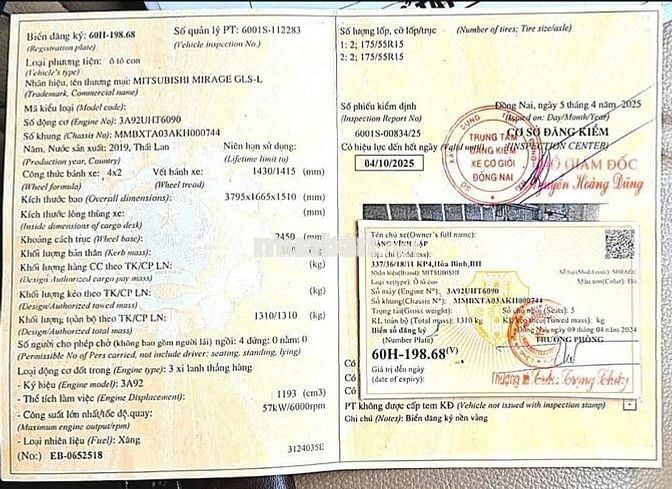 Biển đăng ký: 60H-198.68
(Registration plate)
Số quản lý PT: 6001S-112283
(Vehicle inspection No.)
Loại phương tiện: Ô tô con
(Vehicle's type)
Nhãn hiệu, tên thương mại: MITSUBISHI MIRAGE GLS-L
(Trademark, Commercial name)
Mã kiểu loại (Model code):
Số động cơ (Engine No): 3A92UHT6090
Số khung (Chassis No): MMBXTA03AKH000744
Năm, Nước sản xuất: 2019, Thái Lan
(Production year, Country)
Niên hạn sử dụng:
(Lifetime limit to)
Công thức bánh xe: 4x2
(Wheel formula)
Vết bánh xe: 1430/1415 (mm)
(Wheel tread)
Kích thước bao (Overall dimensions): 3795x1665x1510 (mm)
Kích thước lòng thùng xe: (mm)
(Inside dimensions of cargo desk)
Khoảng cách trục (Wheel base): 2450 (mm)
Khối lượng bản thân (Kerb mass): (kg)
Khối lượng hàng CC theo TK/CP LN: (kg)
(Design/Authorized cargo pay mass)
Khối lượng kéo theo TK/CP LN: (kg)
(Design/Authorized towed mass)
Khối lượng toàn bộ theo TK/CP LN: 1310/1310 (kg)
(Design/Authorized total mass)
Số người cho phép chở (không bao gồm người lái) ngồi: 4 đứng: 0 nằm: 0
(Permissible No of Pers carried, not include driver: seating, standing, lying)
Loại động cơ đốt trong (Engine type): 3 xi lanh thẳng hàng
- Ký hiệu (Engine model): 3A92
- Thể tích làm việc (Engine Displacement): 1193 (cm3)
- Công suất lớn nhất/tốc độ quay: 57kW/6000rpm
(Maximum engine output/rpm)
- Loại nhiên liệu (Fuel): Xăng
(No): EB-0652518
3124035E
Số lượng lốp, cỡ lốp/trục (Number of tires; Tire size/axle)
1: 2; 175/55R15
2: 2; 175/55R15
Số phiếu kiểm định
(Inspection Report No)
6001S-00834/25
Đồng Nai, ngày 5 tháng 4 năm 2025
(Issued on: Day/Month/Year)
CƠ SỞ ĐĂNG KIỂM
(INSPECTION CENTER)
Có hiệu lực đến hết ngày (Valid until)
04/10/2025
TRUNG TÂM
ĐĂNG KIỂM
XE CƠ GIỚI
ĐỒNG NAI
GIÁM ĐỐC
Nguyễn Hoàng Dũng
Tên chủ xe(Owner's full name):
ĐẶNG VĨNH LẬP
Địa chỉ(Address):
337/36/18/11 KP4,Hòa Bình,BH
Nhãn hiệu(Brand): MITSUBISHI
Số loại(Model code): MIRAGE
Loại xe(Type): Ô tô con
Màu sơn(Color): Đỏ
Số máy (Engine N°): 3A92UHT6090
Số khung(Chassis N°): MMBXTA03AKH000744
Trọng tải(Gross weight):
Số chỗ ngồi(Seats): 5
KL toàn bộ (Total mass): 1310 kg
KL kéo theo (Towed mass): kg
Biển số đăng ký
(Number Plate)
Đồng Nai, ngày 09 tháng 04 năm 2024
TRƯỞNG PHÒNG
60H-198.68(V)
Giá trị đến ngày
(date of expiry):
PT không được cấp tem KĐ (Vehicle not issued with inspection stamp)
Ghi chú (Notes): Biển đăng ký nền vàng